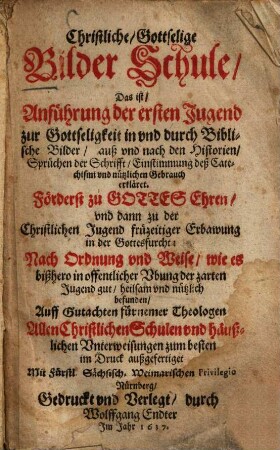 Christliche/Gottselige
Bilder Schule/
Das ist/
Anführung der ersten Jugend
zur Gottseligkeit in vnd durch Bibli-
sche Bilder/ auß vnd nach den Historien/
Sprüchen der Schrifft/ Einstimmung deß Cate-
chismi vnd nützlichen Gebrauch
erkläret.
Förderst zu GOTTES Ehren/
vnd dann zu der
Christlichen Jugend früzeitiger Erbawung
in der Gottesfurcht:
Nach Ordnung vnd Weise/ wie es
bißhero in offentlicher Vbung der zarten
Jugend gut/ heilsam vnd nützlich
befunden/
Auff Gutachten fürnemer Theologen
Allen Christlichen Schulen vnd häuß-
lichen Vnterweisungen zum besten
im Druck außgefertiget
Mit Fürstl. Sächsisch. Weimarischen Privilegio
Nürnberg/
Gedruckt vnd Verlegt/ durch
Wolffgang Endter
Im Jahr 1637.